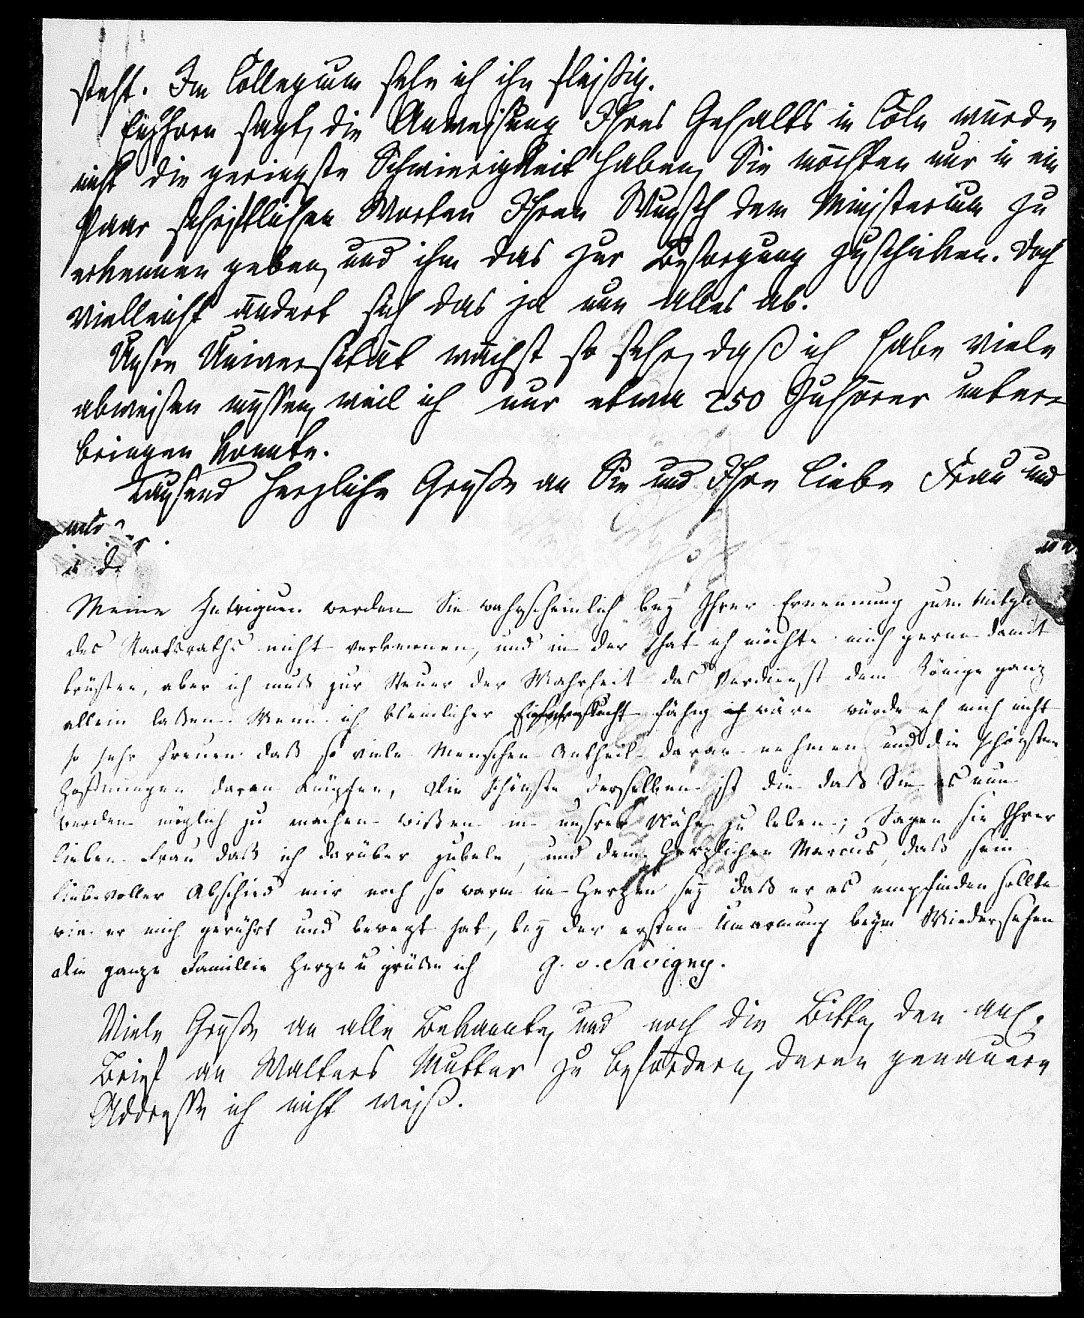 steht. Im Collegium sehe ich ihn fleißig.
Eichhorn sagt, die Anweisung Ihres Gehalts in Cöln würde
nicht die geringste Schwierigkeit haben, Sie möchten nur in ein
Paar schriftlichen Worten Ihren Wunsch dem Ministerium zu
erkennen geben, und ihm das zur Besorgung zuschicken. Doch
vielleicht ändert sich das ja nun alles ab.
Unsre Universität wächst so sehr, daß ich habe viele
abweisen müssen, weil ich nur etwa 250 Zuhörer unter-
bringen konnte.
Tausend herzliche Grüße an Sie und Ihre liebe Frau und
Meine Intriguen werden Sie wahrscheinlich bey Ihrer Ernennung zum Mitgli
des Staatsraths nicht verkennen, und in der That ich möchte mich gerne damit
brüsten, aber ich muß zur Steuer der Wahrheit das Verdienst dem Könige ganz
allein laßen. Wenn ich kleinlicher Eifersucht fähig wäre würde ich mich nicht
so sehr freuen daß so viele Menschen Antheil daran nehmen und die schönsten
Hoffnungen daran knüpfen, die schönste derselben ist die daß Sie es nun
werden möglich zu machen wißen in unsrer Nähe zu leben; Sagen sie Ihrer
lieben Frau daß ich darüber jubele, und dem herzlichen Marcus, daß sein
liebevoller Abschied mir noch so warm im Herzen sey daß er es empfinden sollte
wie er mich gerührt und bewegt hat, bey der ersten Umarmung beym Wiedersehen
die ganze Familie Herze u grüße ich G. v. Savigny.
Viele Grüße an alle Bekannte, und noch die Bitte, den anl.
Brief an Walters Mutter zu befördern, deren genauere
Addresse ich nicht weiß.